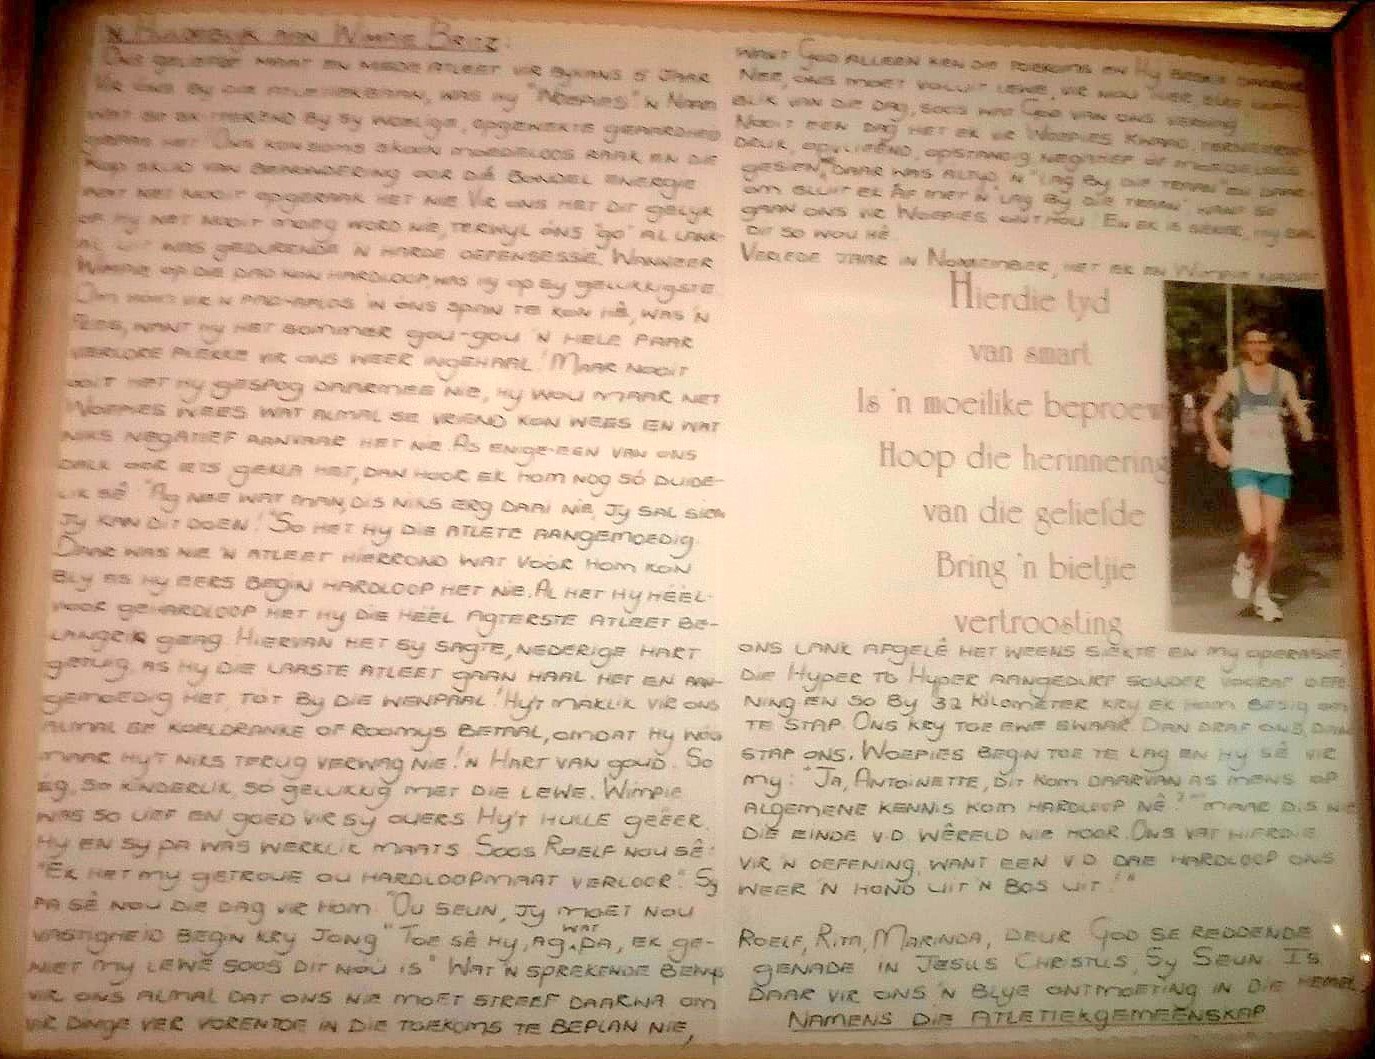 'n Huldeblyk aan Wimpie Britz:
Ons geliefde maat en mede atleet vir bykans 5 jaar
Vir ons by die atletiekbaan, was hy "Woepies" 'n Naam
wat so by sy woelige, opgewekte geaardheid
gepas het. Ons kon soms skoon moedeloos raak en die
kop skud van bewondering oor dié bondel energie
wat net nooit opgeraak het nie. Vir ons het dit gelyk
of hy net nooit moeg word nie, terwyl ons "go" al lank-
al uit was gedurende 'n harde oefensessie. Wanneer
Wimpie op die pad kon hardloop was hy op sy gelukkigste.
Om hom vir 'n pad-aflos in ons span te kon hê, was 'n
fees, want hy het sommer gou-gou 'n hele paar
verlore plekke vir ons weer ingehaal! Maar nooit
ooit het hy gespog daarmee nie, hy wou maar net
Woepies wees wat almal se vriend kon wees en wat
niks negatief aanvaar het nie. As enige-een van ons
dalk oor iets gekla het, dan hoor ek hom nog só duide-
lik sê "Ag nee wat man, dis niks erg daai nie, jy sal sien
jy kan dit doen!" So het hy die atlete aangemoedig.
Daar was nie 'n atleet hierrond wat voor hom kon
bly as hy eers begin hardloop het nie. Al het hy héél-
voor gehardloop het hy die heel agterste atleet be-
langrik geag. Hiervan het sy sagte, nederige hart
getuig, as hy die laaste atleet gaan haal het en aan-
gemoedig het, tot by die wenpaal! Hy't maklik vir ons
almal se koeldranke of roomys betaal, omdat hy wou
maar hy't niks terug verwag nie! 'n Hart van goud. So
eg, so kinderlik, so gelukkig met die lewe. Wimpie
was so lief en goed vir sy ouers Hy't hulle geëer.
Hy en sy pa was werklik maats Soos Roelf nou sê:
"Ek het my getroue ou hardloopmaat verloor". Sy
pa sê nou die dag vir hom "Ou seun, jy moet nou
vastigheid begin kry jong" Toe sê hy, Ag wat pa, ek ge-
niet my lewe soos dit nou is" Wat 'n sprekende bewys
vir ons almal dat ons nie moet streef daarna om
vir dinge ver vorentoe in die toekoms te beplan nie,
want God alleen ken die toekoms en Hy beskik daaroor
Nee, ons moet voluit lewe, vir nou, hier, elke
blik van die dag, soos wat God van ons verwag
Nooit een dag het ek vir Woepies kwaad, terneerge-
druk, opvliënd, opstandig, negatief of moedeloos
gesien, daar was altyd 'n "lag by die traan" en daar-
om sluit ek af met 'n "lag by die traan", want so
gaan ons vir Woepies onthou. En ek is seker, hy sal
dit so wou hê.
Verlede jaar in November, het ek en Wimpie nadat
Hierdie tyd
van smart
Is 'n moeilike beproew
Hoop die herinnering
van die geliefde
Bring 'n bietjie
vertroosting
ons lank afgelê het weens siekte en my operasie,
die Hyper to Hyper aangedurf sonder vooraf oefe-
ning en so by 32 kilometer kry ek hom besig om
te stap. Ons kry toe ewe swaar. Dan draf ons, dan
stap ons. Woepies begin toe te lag en hy sê vir
my: "Ja, Antoinette, dit kom daarvan as mens op
algemene kennis kom hardloop nê?" "maar dis nie
die einde v.d wêreld nie hoor. Ons vat hierdie
vir 'n oefening, want een v d dae hardloop ons
weer 'n hond uit 'n bos uit!"
Roelf, Rita, Marinda, deur God se reddende
genade in Jesus Christus, Sy Seun Is
daar vir ons 'n blye ontmoeting in die hemel.
Namens die atletiekgemeenskap